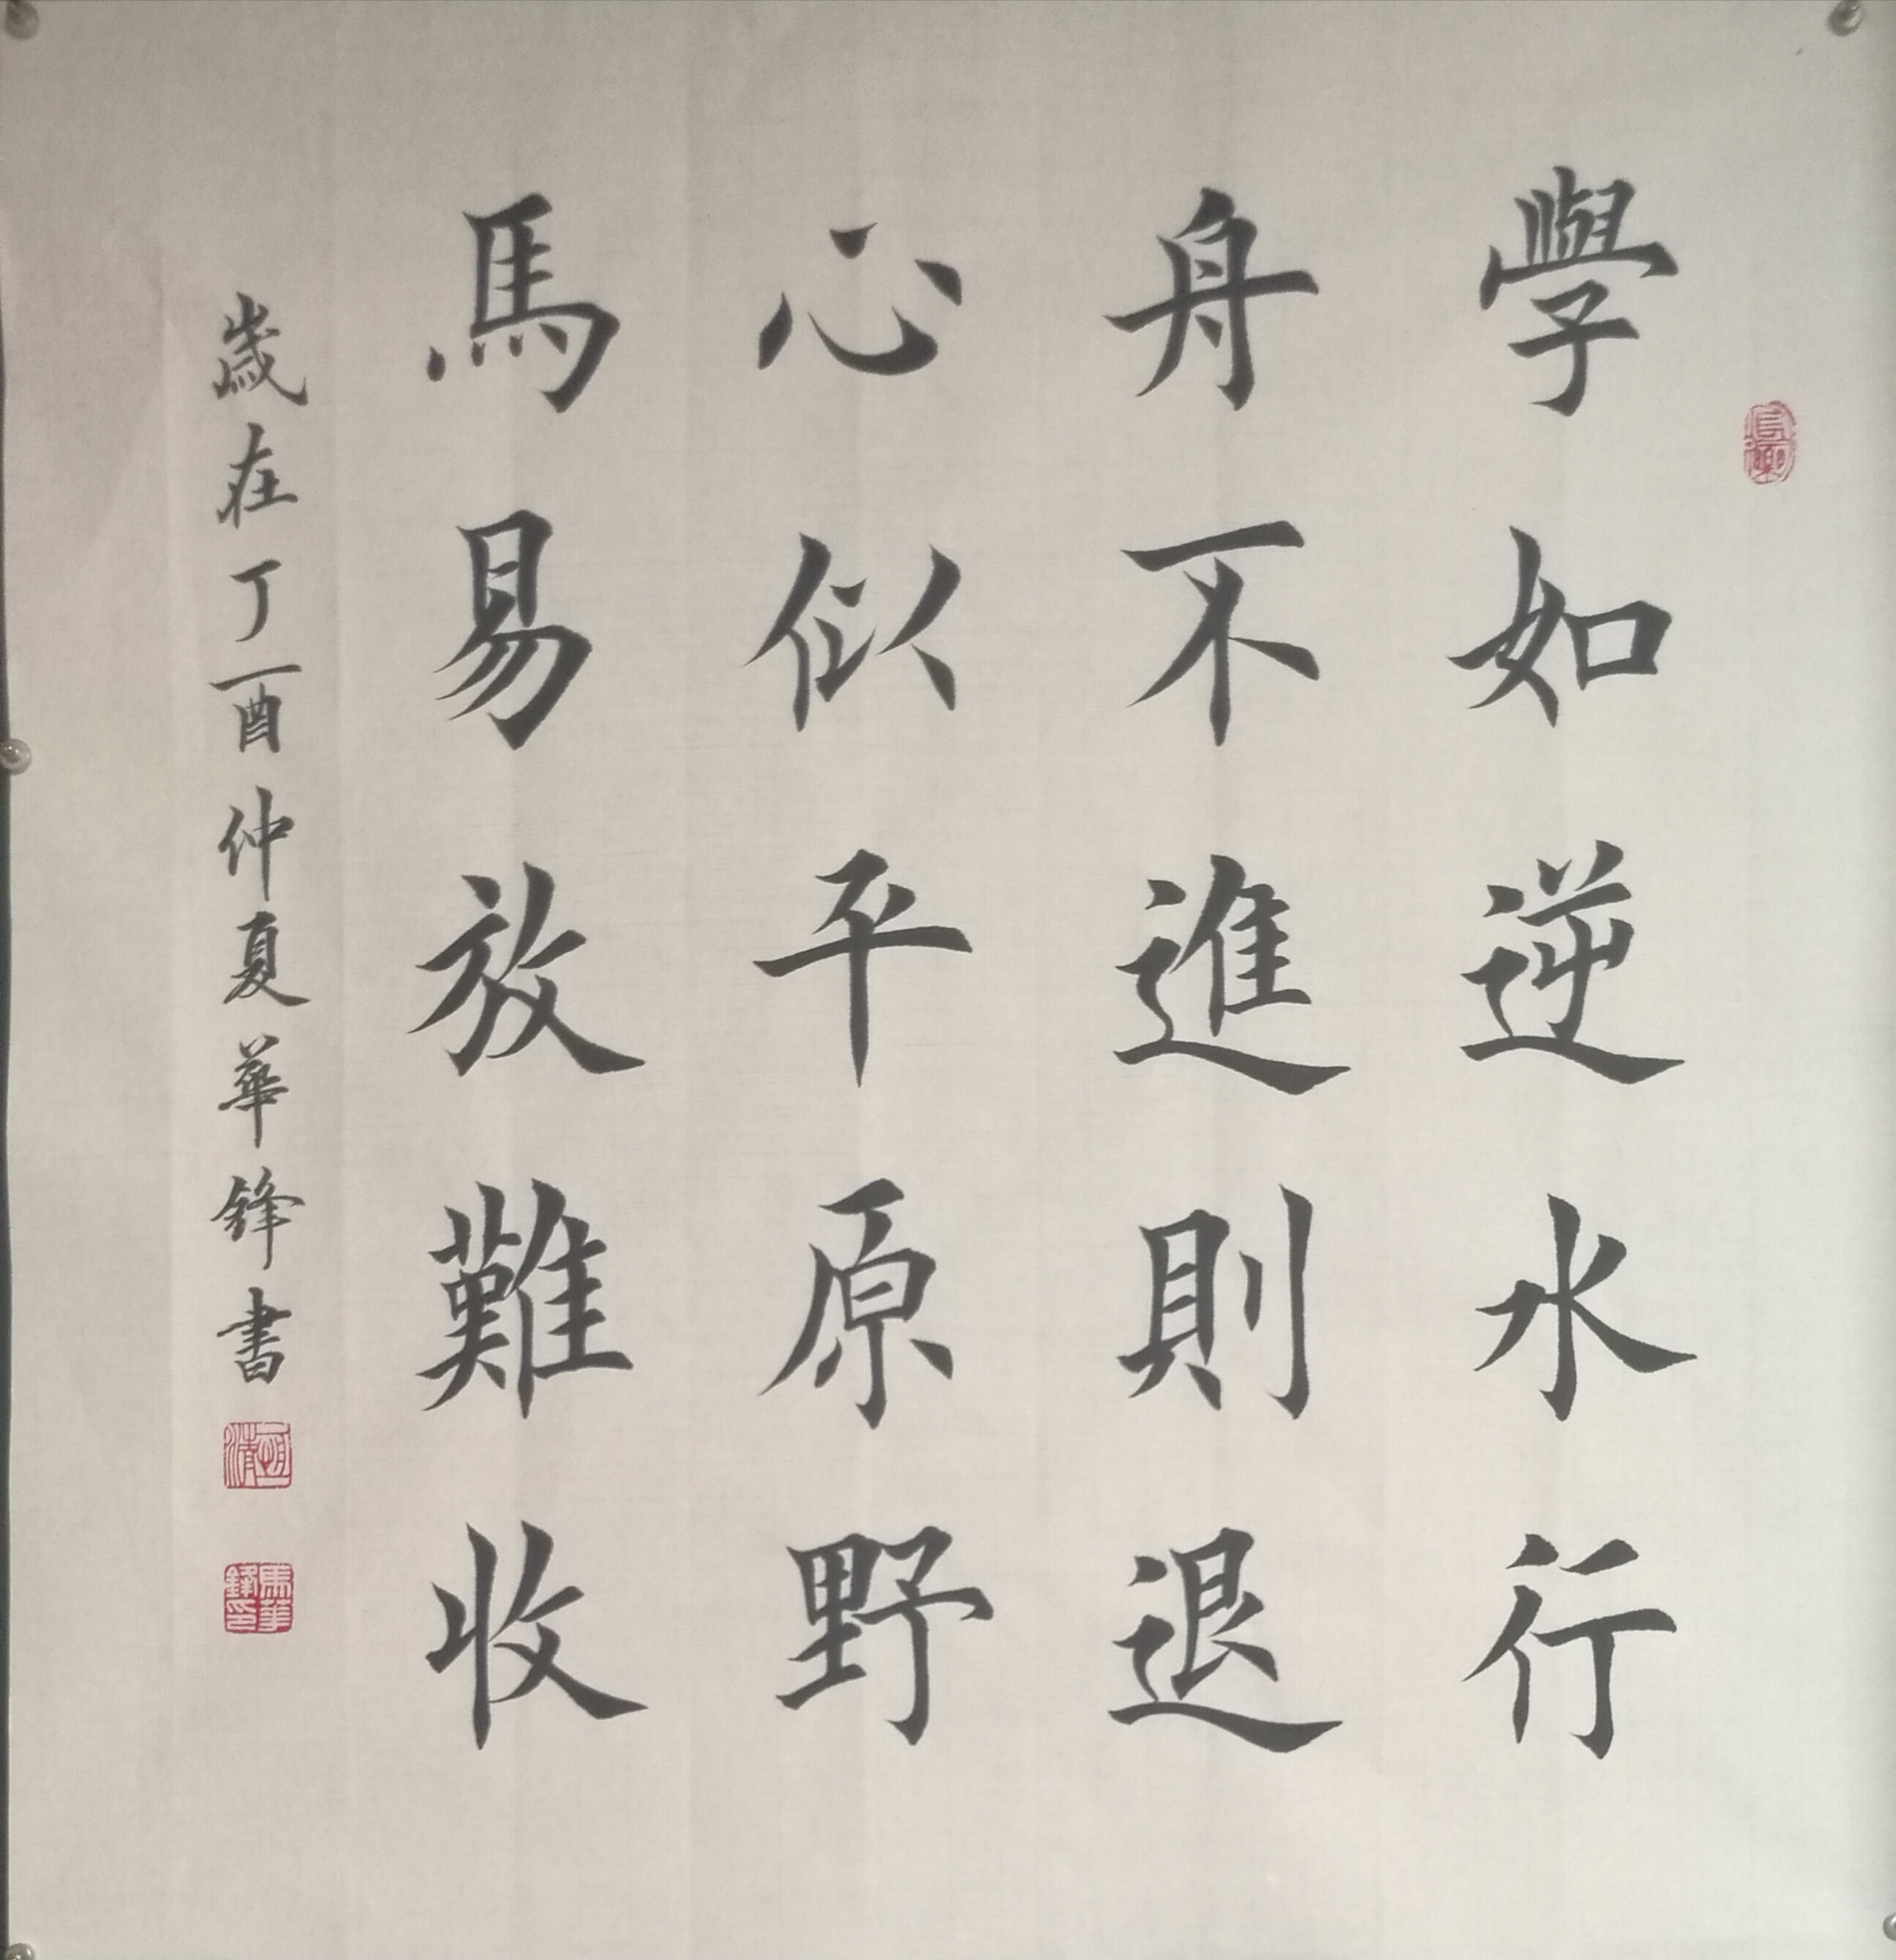 學如逆水行
舟不進則退
心似平原野
馬易放難收
歲在丁酉仲夏華鋒書
馬華鋒印